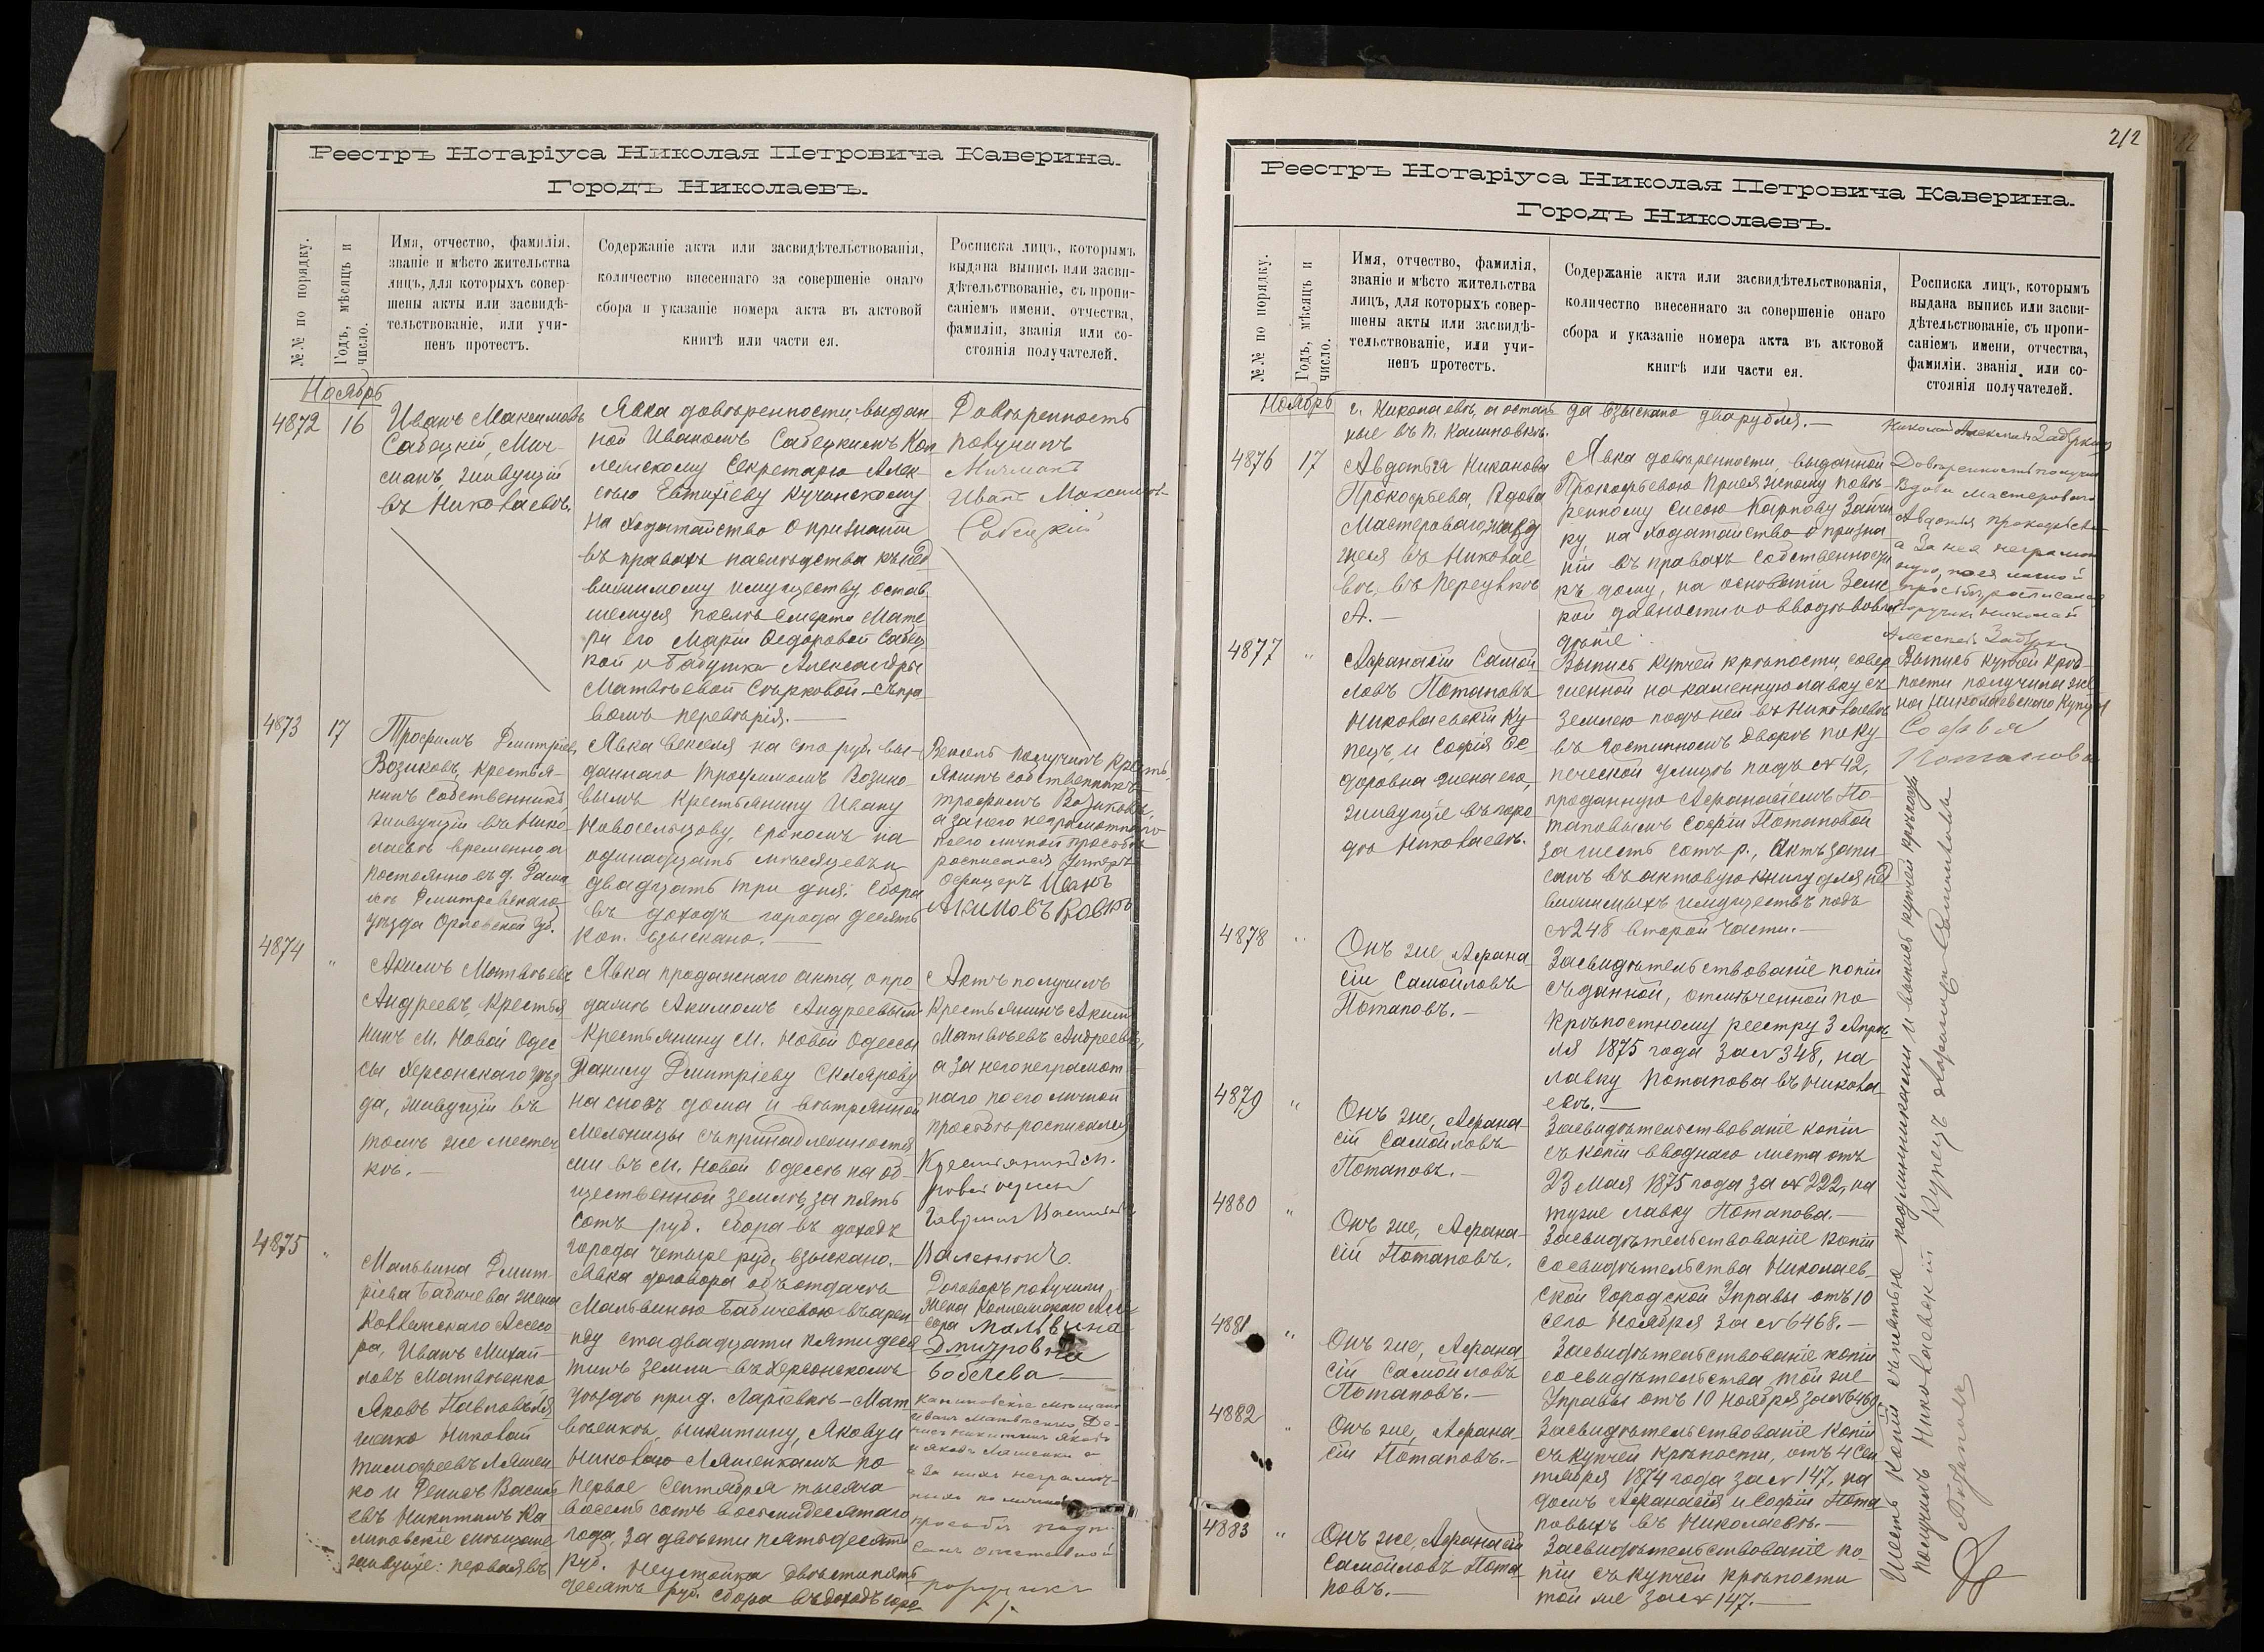 Реестръ Нотаріуса Николая Петровича Каверина.
Городъ Николаевъ.
№№ по порядку.
Годъ, мѣсяцъ и
число.
Имя, отчество, фамилія,
званіе и мѣсто жительства
лицъ, для которыхъ совер-
шены акты или засвидѣ-
тельствованіе, или учи-
ненъ протестъ.
Содержаніе акта или засвидѣтельствованія,
количество внесеннаго за совершеніе онаго
сбора и указаніе номера акта въ актовой
книгѣ или части ея.
Росписка лицъ, которымъ
выдана выпись или засви-
дѣтельствованіе, съ пропи-
саніемъ имени, отчества,
фамиліи, званія или со-
стоянія получателей.
Ноябрь
4872
16
Иванъ Максимовъ
Сабецкій, Мич-
манъ, живущій
въ Николаевѣ.
Явка довѣренности, выдан
ной Иваномъ Сабецкимъ Кол
лежскому Секретарю Алек-
сѣю Евтихіеву Кучинскому
на ходатайство о признаніи
въ правахъ наслѣдства къ нед
вижимому имуществу, остав
шемуся послѣ смерти Мате
ри его Маріи Федоровой Сабец
кой и бабушки Александры
Матвѣевой Сѣрковой – съ пра
вомъ перевѣрія.
Довѣренность
получилъ
Мичманъ
Иванъ Максимов
Собецкій
4873
17
Трофимъ Дмитріев
Возиковъ, крестья-
нинъ собственникъ,
живущій въ Нико-
лаевѣ временно, а
постоянно въ д.
Дмитровскаго
уѣзда Орловской Губ.
Явка векселя на сто руб. вы-
даннаго Трофимомъ Возико-
вымъ Крестьянину Ивану
Новосельцову, срокомъ на
одинадцать мѣсяцевъ и
двадцать три дня; сбора
въ доходъ города десять
коп. взыскано.
Вексель получилъ Кресть-
янинъ собственникъ
Трофимъ Возиковъ,
а за него неграмотнаго
по его личной просьбѣ
росписался Унтеръ
Офицеръ Иванъ
Акимовъ
4874
"
Акимъ Матвѣевъ
Андреевъ, Крестья
нинъ М. Новой Одес
сы Херсонскаго уѣз
да, живущій въ
томъ же местеч
кѣ.
Явка продажнаго акта, о про
дажѣ Акимомъ Андреевымъ
Крестьянину М. Новой Одессы
Данилу Дмитріеву Склярову
на сносъ дома и вѣтрянной
мельницы съ принадлежностя
ми въ М. Новой Одессѣ на об-
щественной землѣ, за пять
сотъ руб. Сбора въ доходъ
города четыре руб. взыскано.
Актъ получилъ
Крестьянинъ Акимъ
Матвѣевъ Андреевъ,
а за него неграмот-
наго по его личной
просьбѣ росписался
Крестьянинъ М.
Новой Одессы
Гаврила
4875
"
Мальвина Дмит-
ріева Бабичева жена
Коллежскаго Ассесо
ра, Иванъ Михай-
ловъ Матвѣенко
Яковъ Павловъ Ля
шенко Николай
Тимофеевъ Ляшен-
ко и Денисъ Васил
евъ Никитинъ Ка
линовскіе мѣщане
живущіе: первая въ
Явка договора объ отдачѣ
Мальвиною Бабичевою въ арен
ду ста двадцати пяти деся
тинъ земли въ Херсонскомъ
уѣздѣ при д. Ларіевкѣ – Мат
вѣенкѣ, Никитину, Якову и
Николаю Ляшенкамъ по
первое Сентября тысяча
восемь сотъ восьмидесятаго
года, за двѣсти пятьдесятъ
руб. Неустойка двѣсти пять
десятъ руб. сбора въ доходъ горо
Договоръ получили
Жена Коллежскаго Ассе
сора Мальвина
Дмитровна
Бабичева
Калиновскіе мѣщане
Иванъ Матвѣенко, Де-
нисъ Никитинъ
и Яковъ Ляшенки
а за нихъ неграмот-
ныхъ по личной
просьбѣ
212
Реестръ Нотаріуса Николая Петровича Каверина.
Городъ Николаевъ.
№№ по порядку.
Годъ, мѣсяцъ и
число.
Имя, отчество, фамилія,
званіе и мѣсто жительства
лицъ, для которыхъ совер-
шены акты или засвидѣ-
тельствованіе, или учи-
ненъ протестъ.
Содержаніе акта или засвидѣтельствованія,
количество внесеннаго за совершеніе онаго
сбора и указаніе номера акта въ актовой
книгѣ или части ея.
Росписка лицъ, которымъ
выдана выпись или засви-
дѣтельствованіе, съ пропи-
саніемъ имени, отчества,
фамиліи. званія, или со-
стоянія получателей.
Ноябрь
г. Николаевѣ, а осталь
ные въ п. Калиновкѣ.
да взыскано два рубля.
Николай
4876
17
Авдотья Никанова
Прокофьева, Вдова
Мастероваго, живу
щая въ Николае
вѣ, въ переулкѣ
А.
Явка довѣренности, выданной
Прокофьевою Присяжному повѣ-
ренному Сысою Карпову Зайчи
ку на ходатайство о призна
ніи въ правахъ собственности
къ дому, на основаніи Земс
кой давности и о вводѣ во вла
дѣніе
Довѣренность получила
Вдова Мастероваго
Авдотья Прокофьева
а за нея неграмот
ную, по ея личной
просьбѣ, росписался
Поручикъ Николай
4877
"
Афанасій Самой
ловъ Потаповъ
Николаевскій Ку
пецъ, и Софія Фе
доровна жена его,
живущіе въ горо
дѣ Николаевѣ.
Выпись купчей крѣпости, совер
шенной на каменную лавку съ
землею подъ ней въ Николаевѣ
въ Гостинномъ Дворѣ по Ку
печеской улицѣ подъ № 42,
проданную Афанасіемъ По-
таповымъ Софіи Потаповой
за шесть сотъ р., Актъ запи-
санъ въ актовую книгу для нед
вижимыхъ имуществъ подъ
№ 248 второй части.
Выпись купчей крѣ-
пости получила же
на Николаевскаго Купца
Софья
Потапова
4878
"
Онъ же, Афана
сій Самойловъ
Потаповъ.
Засвидѣтельствованіе копіи
съ данной, отмѣченной по
крѣпостному реестру 3 Апрѣ
ля 1875 года за № 348, на
лавку Потапова въ Никола
евѣ.
4879
"
Онъ же, Афана-
сій Самойловъ
Потаповъ.
Засвидѣтельствованіе копіи
съ копіи вводнаго листа отъ
23 Мая 1875 года за № 222, на
туже лавку Потапова.
4880
"
Онъ же, Афана-
сій Потаповъ.
Засвидѣтельствованіе копіи
со свидѣтельства Николаев-
ской Городской Управы отъ 10
сего Ноября за № 6468.
4881
"
Онъ же, Афана-
сій Самойловъ
Потаповъ.
Засвидѣтельствованіе копіи
со свидѣтельства той же
Управы отъ 10 Ноября за № 6469
4882
"
Онъ же, Афана
сій Потаповъ.
Засвидѣтельствованіе копіи
съ купчей крѣпости, отъ 4 Сен
тября 1874 года за № 147, на
домъ Афанасія и Софіи Пота
повыхъ въ Николаевѣ.
4883
"
Онъ же, Афанасій
Самойловъ Пота-
повъ.
Засвидѣтельствованіе ко-
піи съ купчей крѣпости
той же за № 147.
Шесть копій съ пятью подлинниками и выпись купчей крѣпости
получилъ Николаевскій Купецъ Афанасій Самойловъ
Потаповъ